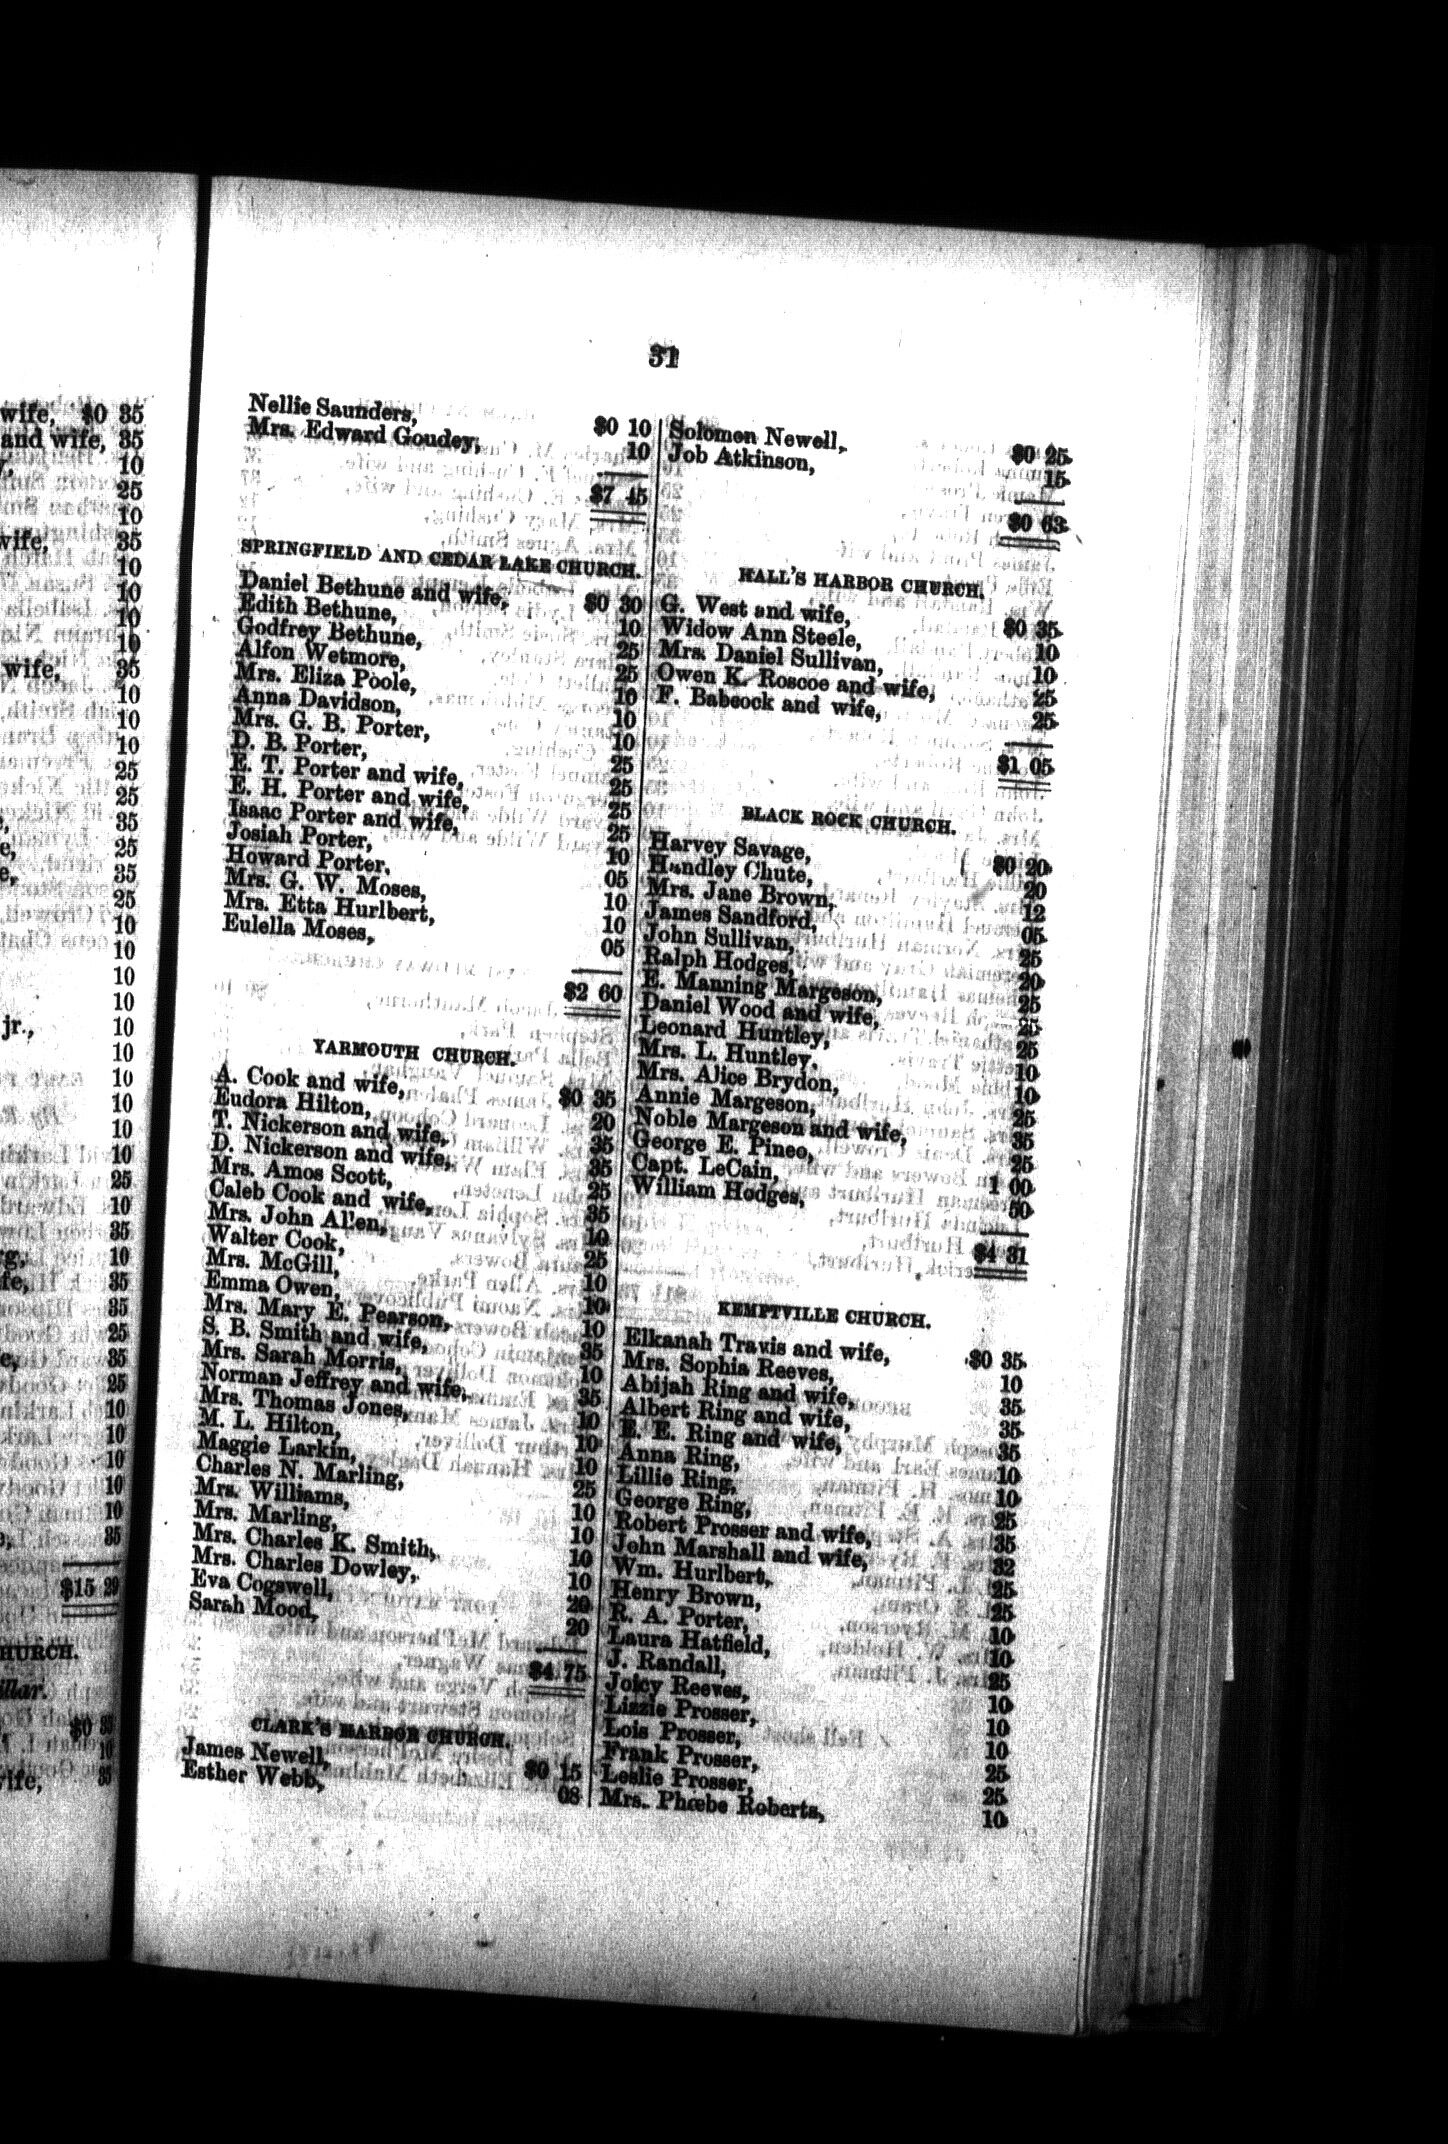 wife, $0 35
and wife, 35
10
25
10
wife, 35
10
10
10
10
wife, 35
10
10
10
25
25
35
25
35
25
10
10
10
10
jr., 10
10
10
10
10
10
25
10
35
10
35
35
25
35
25
10
10
10
10
10
35
$15 29
HURCH.
$0 35
10
wife, 35
31
Nellie Saunders, $0 10
Mrs. Edward Goudey, 10
$7 45
SPRINGFIELD AND CEDAR LAKE CHURCH.
Daniel Bethune and wife, $0 30
Edith Bethune, 10
Godfrey Bethune, 25
Alfon Wetmore, 25
Mrs. Eliza Poole, 10
Anna Davidson, 10
Mrs. G. B. Porter, 10
D. B. Porter, 25
E. T. Porter and wife, 25
E. H. Porter and wife, 25
Isaac Porter and wife, 25
Josiah Porter, 10
Howard Porter, 05
Mrs. G. W. Moses, 10
Mrs. Etta Hurlbert, 10
Eulella Moses, 05
$2 60
YARMOUTH CHURCH.
A. Cook and wife, $0 35
Eudora Hilton, 20
T. Nickerson and wife, 35
D. Nickerson and wife, 35
Mrs. Amos Scott, 25
Caleb Cook and wife, 35
Mrs. John Allen, 10
Walter Cook, 25
Mrs. McGill, 10
Emma Owen, 10
Mrs. Mary E. Pearson, 10
S. B. Smith and wife, 35
Mrs. Sarah Morris, 10
Norman Jeffrey and wife, 35
Mrs. Thomas Jones, 10
M. L. Hilton, 10
Maggie Larkin, 10
Charles N. Marling, 25
Mrs. Williams, 10
Mrs. Marling, 10
Mrs. Charles K. Smith, 10
Mrs. Charles Dowley, 10
Eva Cogswell, 20
Sarah Mood, 20
$4 75
CLARK'S HARBOR CHURCH.
James Newell, $0 15
Esther Webb, 08
Solomon Newell, $0 25
Job Atkinson, 15
$0 63
HALL'S HARBOR CHURCH.
G. West and wife, $0 35
Widow Ann Steele, 10
Mrs. Daniel Sullivan, 10
Owen K. Roscoe and wife, 25
F. Babcock and wife, 25
$1 05
BLACK ROCK CHURCH.
Harvey Savage, $0 20
Handley Chute, 20
Mrs. Jane Brown, 12
James Sandford, 05
John Sullivan, 25
Ralph Hodges, 20
E. Manning Margeson, 25
Daniel Wood and wife, 25
Leonard Huntley, 25
Mrs. L. Huntley, 10
Mrs. Alice Brydon, 10
Annie Margeson, 25
Noble Margeson and wife, 35
George E. Pineo, 25
Capt. LeCain, 1 00
William Hodges, 50
$4 31
KEMPTVILLE CHURCH.
Elkanah Travis and wife, $0 35
Mrs. Sophia Reeves, 10
Abijah Ring and wife, 35
Albert Ring and wife, 35
E. E. Ring and wife, 35
Anna Ring, 10
Lillie Ring, 10
George Ring, 25
Robert Prosser and wife, 35
John Marshall and wife, 32
Wm. Hurlbert, 25
Henry Brown, 25
R. A. Porter, 10
Laura Hatfield, 10
J. Randall, 25
Joicy Reeves, 10
Lizzie Prosser, 10
Lois Prosser, 10
Frank Prosser, 25
Leslie Prosser, 25
Mrs. Phœbe Roberts, 10